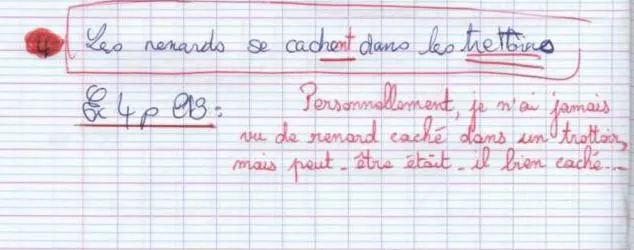 4 Les renards se cachent dans les trottoirs
Ex 4 p 213 : Personnellement, je n'ai jamais
vu de renard caché dans un trottoir,
mais peut-être était-il bien caché...